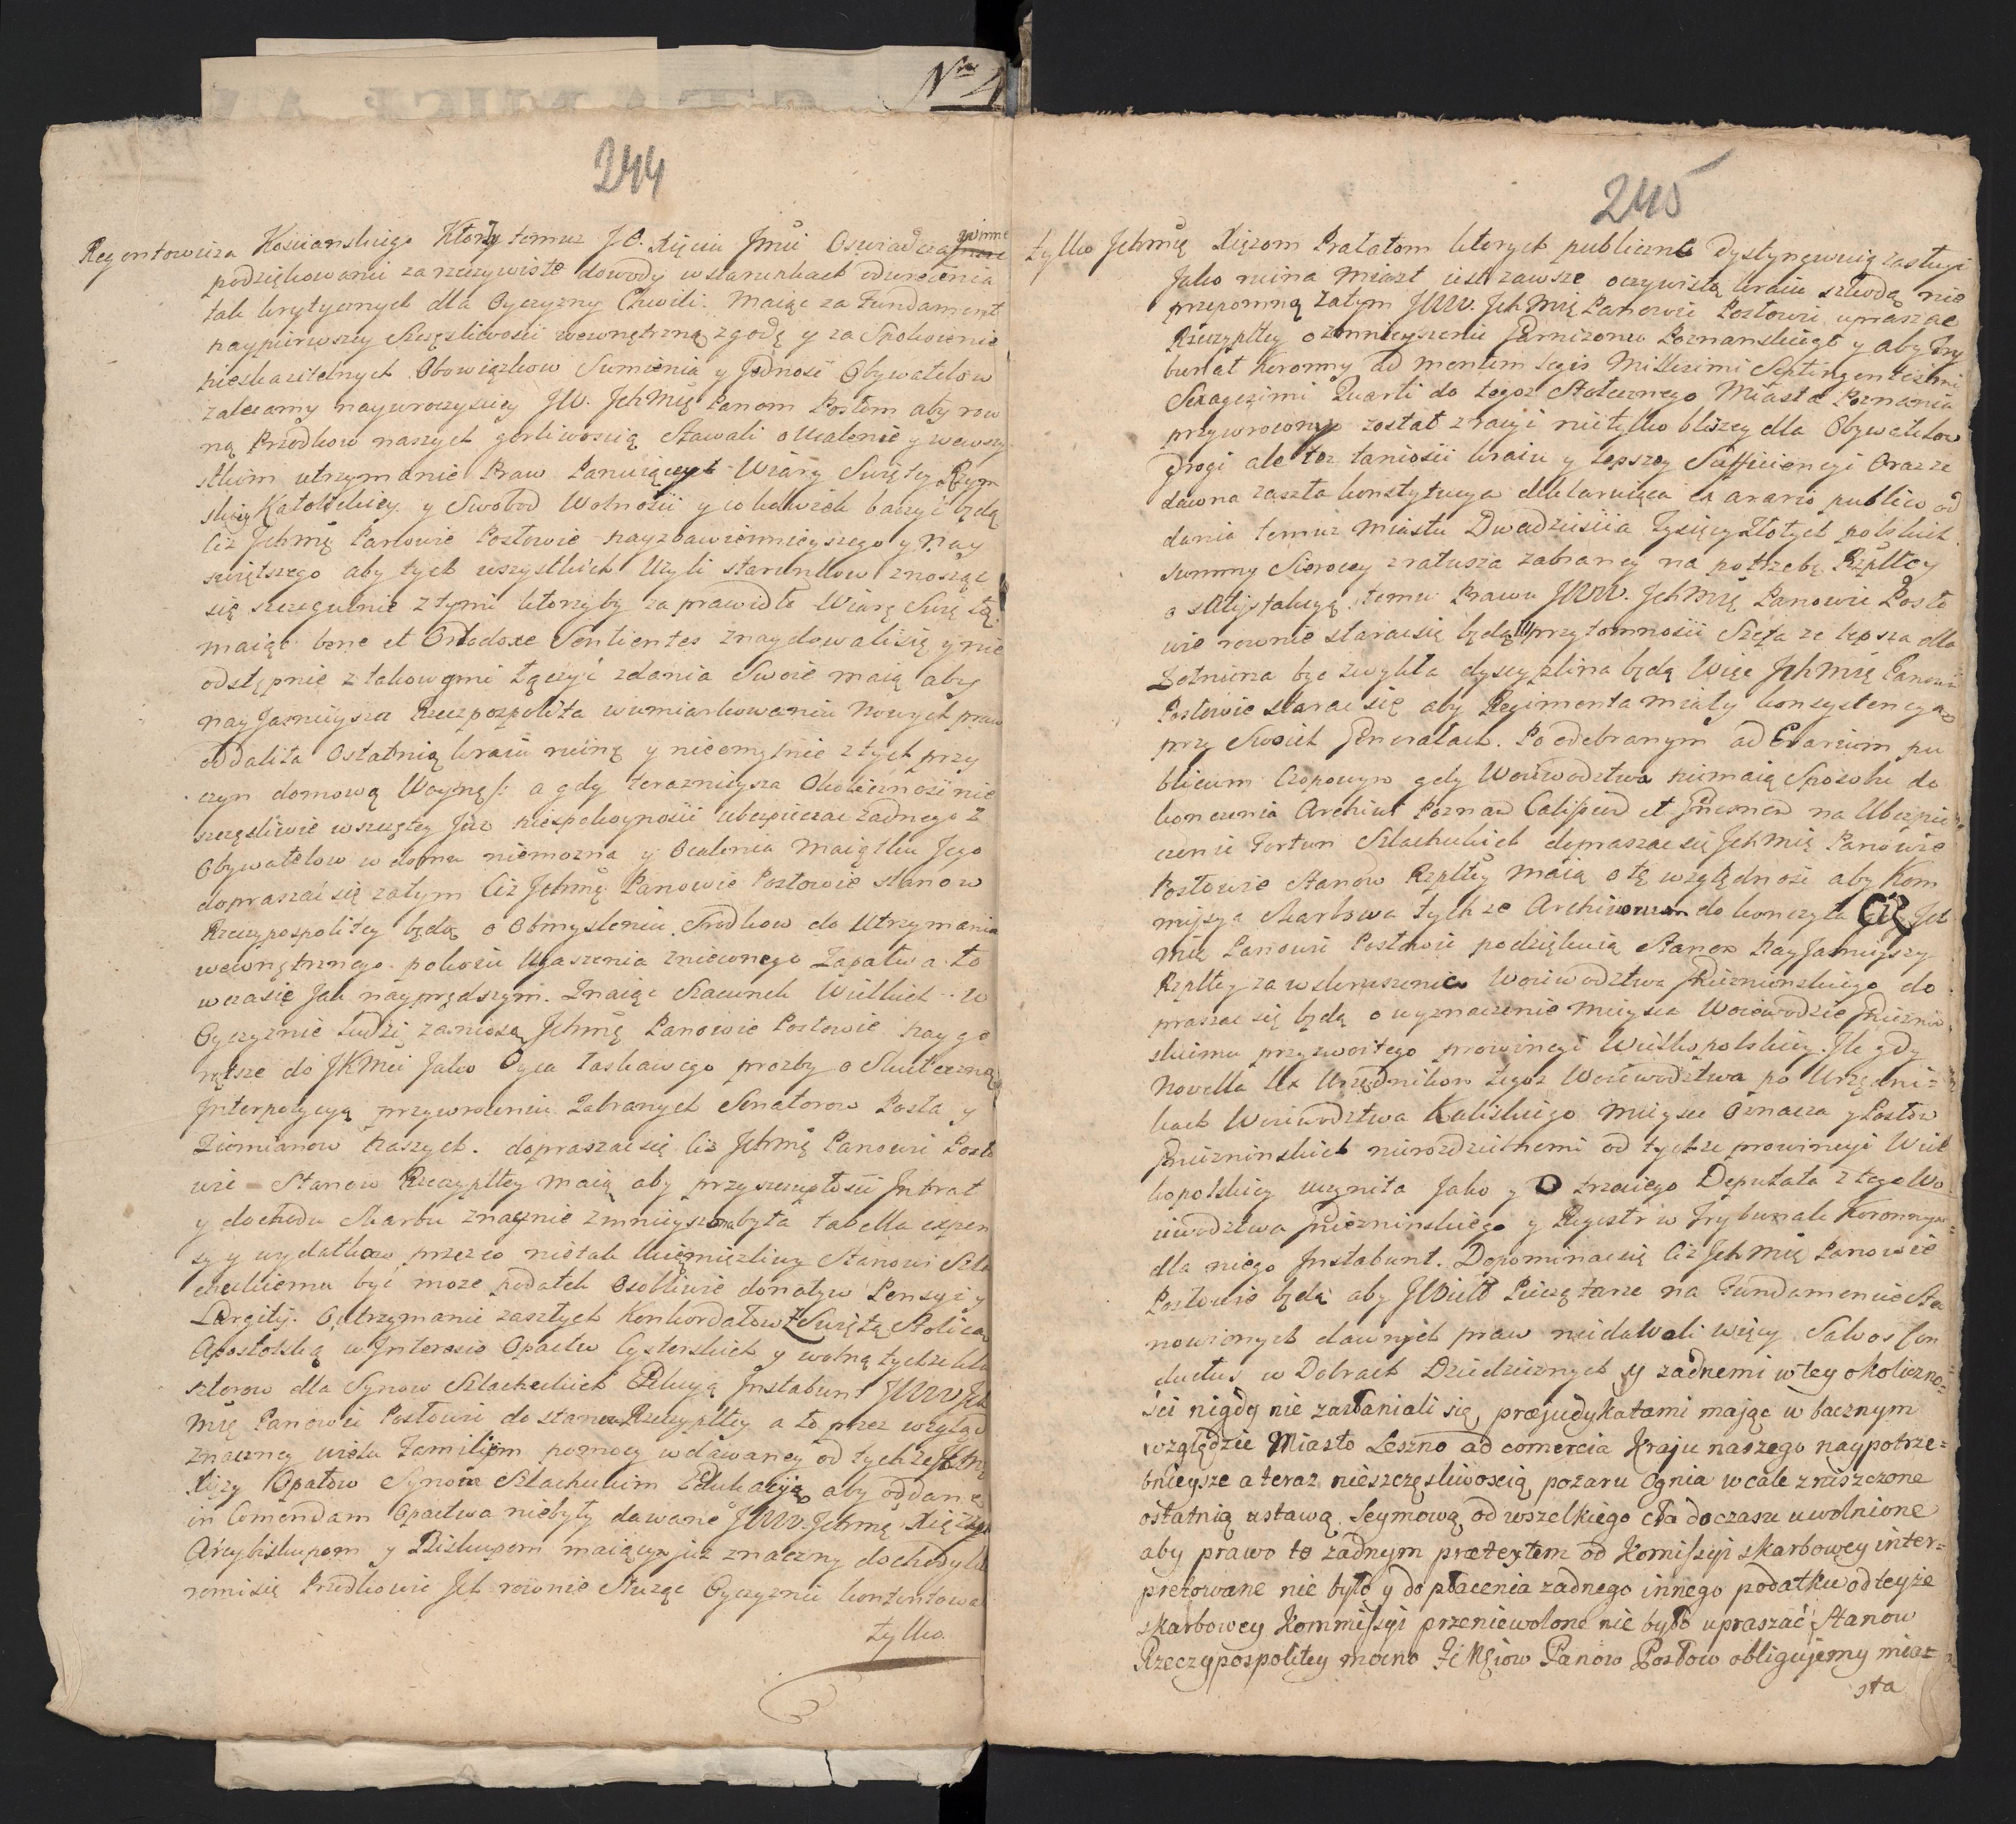 Nro 4
244
Regentowicza Kosciańskiego Ktorzy temuz J O. Xięciu Jmci Oswiadczą winne
podziękowanie za rzeczywiste dowody w starunkach odwrocenia
tak krytycznych dla Oyczyzny Chwili. Maiąc za Fundament
naypierwszy Szczęsliwosci wewnętrzną zgodę y za Spoienie
nieskazitelnych Obowiązkow Sumienia y Jednosć Obywatelow
zalecamy nayuroczysciey JW. Jchmię Panom Posłom aby row
ną Przodkow naszych gorliwoscią Stawali o Ucalenie y we wszy
stkim utrzymanie Praw Panuiącey Wiary Swiętey Rzym
skiey Katolickiey y Swobod Wolnosci y iakowiek baczyć będą
Ciz Jchmę Panowie Posłowie nayzbawiennieyszego y nay
swiętszego aby tych wszystkich Uzyli starunkow znosząc
się szczegulnie z tymi ktorzyby za prawidło Wiarę Swiętą
maiąc bene et Ortodoxe Sentientes znaydowali się y nie
odstępnie z takowymi łączyć zdania Swoie maią aby
nay Jasnieysza Rzeczpospolita w umiarkowaniu Nowych praw
oddaliła Ostatnią kraiu ruinę y nieomylnie z tych przy
czyn domową Woynę /: a gdy teraznieysza Okolicznosć nie
szczęsliwie wszczętey Juz niespokoynosci ubespieczac zadnego z
Obywatelow w domu niemozna y Ocalenia Maiątku Jego
dopraszać się zatym Ciz Jchmę Panowie Posłowie stanow
Rzeczypospolitey będą o Obmyslenie Srodkow do Utrzymania
wewnętrznego pokoiu Ugaszenia zniewnego Zapału a to
w czasie Jak nayprędszym. Znaiąc Szacunek Wielkich w
Oyczyznie Ludzi zaniosą Jchmę Panowie Posłowie naygo
rętsze do JKMci Jako Oyca łaskawego prozby o Skuteczną
Jnterpozycyą przywrocenia Zabranych Senatorow Posła y
Ziomianow Naszych. dopraszac się Ciz Jchmę Panowie Posło
wie Stanow Rzeczypltey maią aby przyszczupłosci Jntrat
y dochodu Skarbu znacznie zmnieyszona była tabella expen
sy y wydatkow przez co nie tak uciemięzliwy Stanowi Szla
checkiemu być moze podatek Osobliwie donatyw Pensyi y
Largitij. O utrzymanie zaszłych Konkordatow z Swiętą Stolicą
Apostolską w Jnteresie Opactw Cysterskich y wolną tychze kla
sztorow dla Synow Szlacheckich Edukcyą Jnstabunt JWW Jch
mię Panowie Posłowie do stanow Rzeczypltey a to przez wzgląd
znaczney wielu Familiom pomocy w dawaney od tychze Jchmę
Xięzy Opatow Synom Szlacheckim Edukacyą aby oddane
in Comendam Opactwa niebyły dawane JWW. Jchmę Xięzy
Arcybiskupom y Biskupom maiącym juz znaczny dochody kto
remi się Przodkowie Jch rownie słuząc Oyczyznie kontentowali
tylko.
245
tylko Jchmię Xięzom Prałatom ktorych publiczne dystyngwuią zasługi
Jako ruina Miast iest zawsze oczywistą kraiu szkodą nie
przepomną zatym JWW. Jchmię Panowie Posłowie upraszać
Rzeczypltey o zmnieyszenie Garnizonu Poznanskiego y aby Try
bunał Koronny ad mentem legis Millesimi Septingentesimi
Sexagesimi Quarti do tegoz Stołecznego Miasta Poznania
przywrocony został z racyi nie tylko blizszey dla Obywatelow
drogi ale tez taniosci kraiu y lepszey Sufficiencyi Oraz ze
dawna zaszła konstytucya deklaruiąca ex ærario publico od
dania temuz Miastu Dwadziescia Tysięcy złotych polskich
summy Sierocey z ratusza zabraney na potrzebę Rzpltey
a satisfakcyą temu Prawu JWW. Jchmię Panowie Posło
wie rownie starać się będą przytomnosci Szefa ze lepsza dla
Zołnierza byc zwykła dyscyplina będą Więc Jchmię Panowie
Posłowie starać się aby Regimenta miały konsystencyą
przy Swoich Generałach. Po odebranym ad Erarium pu
blicum Czopowym gdy Woiewodztwa niemaią Sposobu do
konczenia Archiw Poznań Calissień et Gnesnen na Ubezpie
czenie Fortun Szlacheckich dopraszać się Jchmię Panowie
Posłowie Stanow Rzpltey maią o tę względnosć aby Kom
missya skarbowa tychze Archiwum dokonczyła Ciz Jch
mię Panowie Posłowie podziękuią Stanom Nay Jasnieyszy
Rzpltey za wskrzeszenie Woiewodztwa Gnieznienskiego do
praszać się będą o wyznaczenie mieysca Woiewodzie Gniezni
skiemu przyzwoitego prowincyi Wielkopolskiey. Jle gdy
Novella Lex Urzędnikow tegoz Woiewodztwa po Urzędni=
kach Woiewodztwa Kaliskiego mieysce Oznacza y Posłow
Gnieznińskich nierozdzielnemi od tychze prowincyi Wiel
kopolskiey uczyniła Jako y O trzeciego Deputata z tego Wo
iewodztwa Gnieznińskiego y Regestr w Trybunale Koronnym
dla niego Jnstabunt. Dopominać się Ciz Jchmię Panowie
Posłowie będą aby JWW Pieczętarze na Fundamencie Sta
nowionych dawnych praw niedawali więcy Salvos Con
ductus w Dobrach Dziedzicznych y zadnemi w tey okoliczno=
sci nigdy nie zasłaniali się præjudykatami mając w bacznym
względzie Miasto Leszno ad comercia Kraju naszego naypotrze=
bnieysze a teraz nieszczęsliwoscią pozaru Ognia wcale zniszczone
ostatnią ustawą Seymową od wszelkiego cła do czasu uwolnione
aby prawo to zadnym prætextem od Komissyi skarbowey inter=
pretowane nie było y do płacenia zadnego innego podatku od teyze
skarbowey Kommissyi przeniewolone nie było upraszać Stanow
Rzeczypospolitey mocno Jchmciow Panow Posłow obligujemy mia=
sta